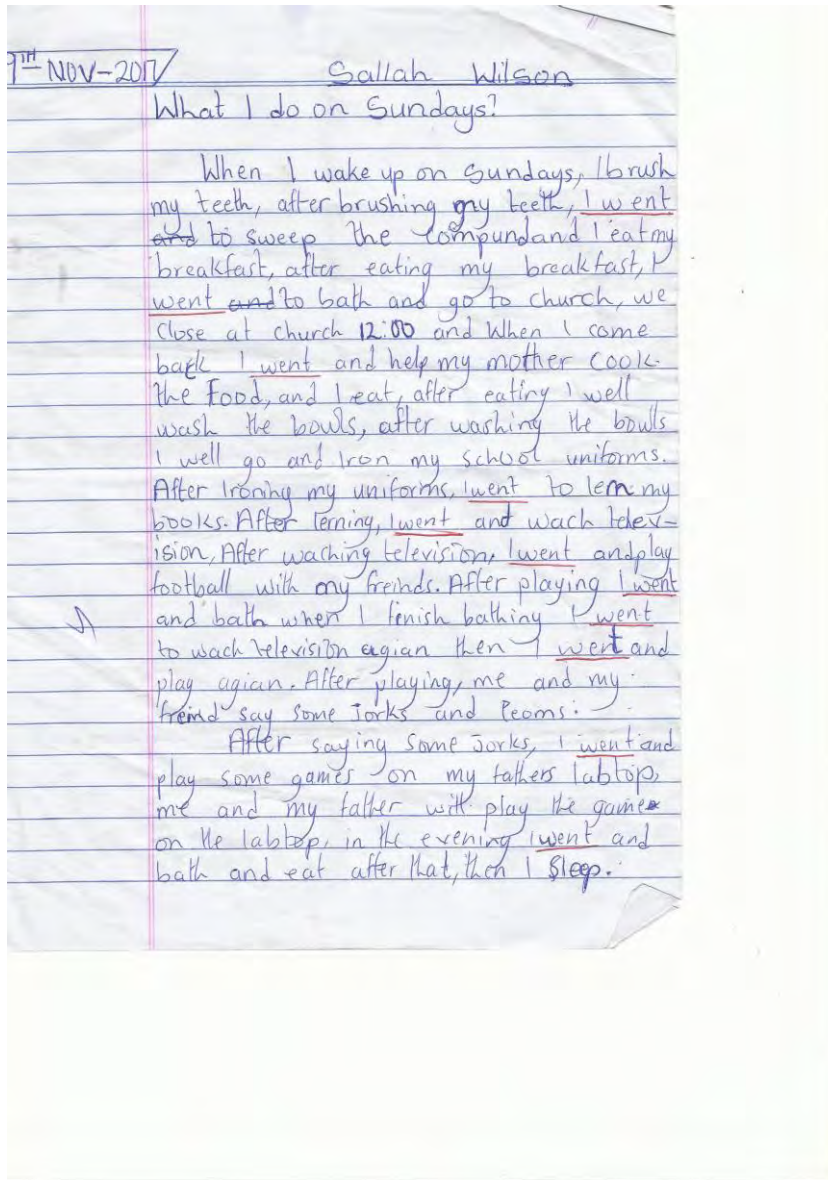 9TH NOV-2017 Sallah Wilson
What I do on Sundays?
When I wake up on Sundays, I brush
my teeth, after brushing my teeth, I went
and to sweep the compundand I eat my
breakfast, after eating my breakfast, I
went and to bath and go to church, we
close at church 12:00 and When I come
back I went and help my mother cook
the food, and I eat, after eating I well
wash the bowls, after washing the bowls
I well go and Iron my school uniforms.
After Ironing my uniforms, I went to lern my
books. After lerning, I went and wach telev-
ision, After waching television, I went andplay
football with my freinds. After playing I went
and bath when I finish bathing I went
to wach television agian then I went and
play agian. After playing, me and my
freind say some Jorks and Peoms.
After saying some Jorks, I went and
play some games on my fathers labtop,
me and my father will play the game
on the labtop, in the evening I went and
bath and eat after that, then I sleep.